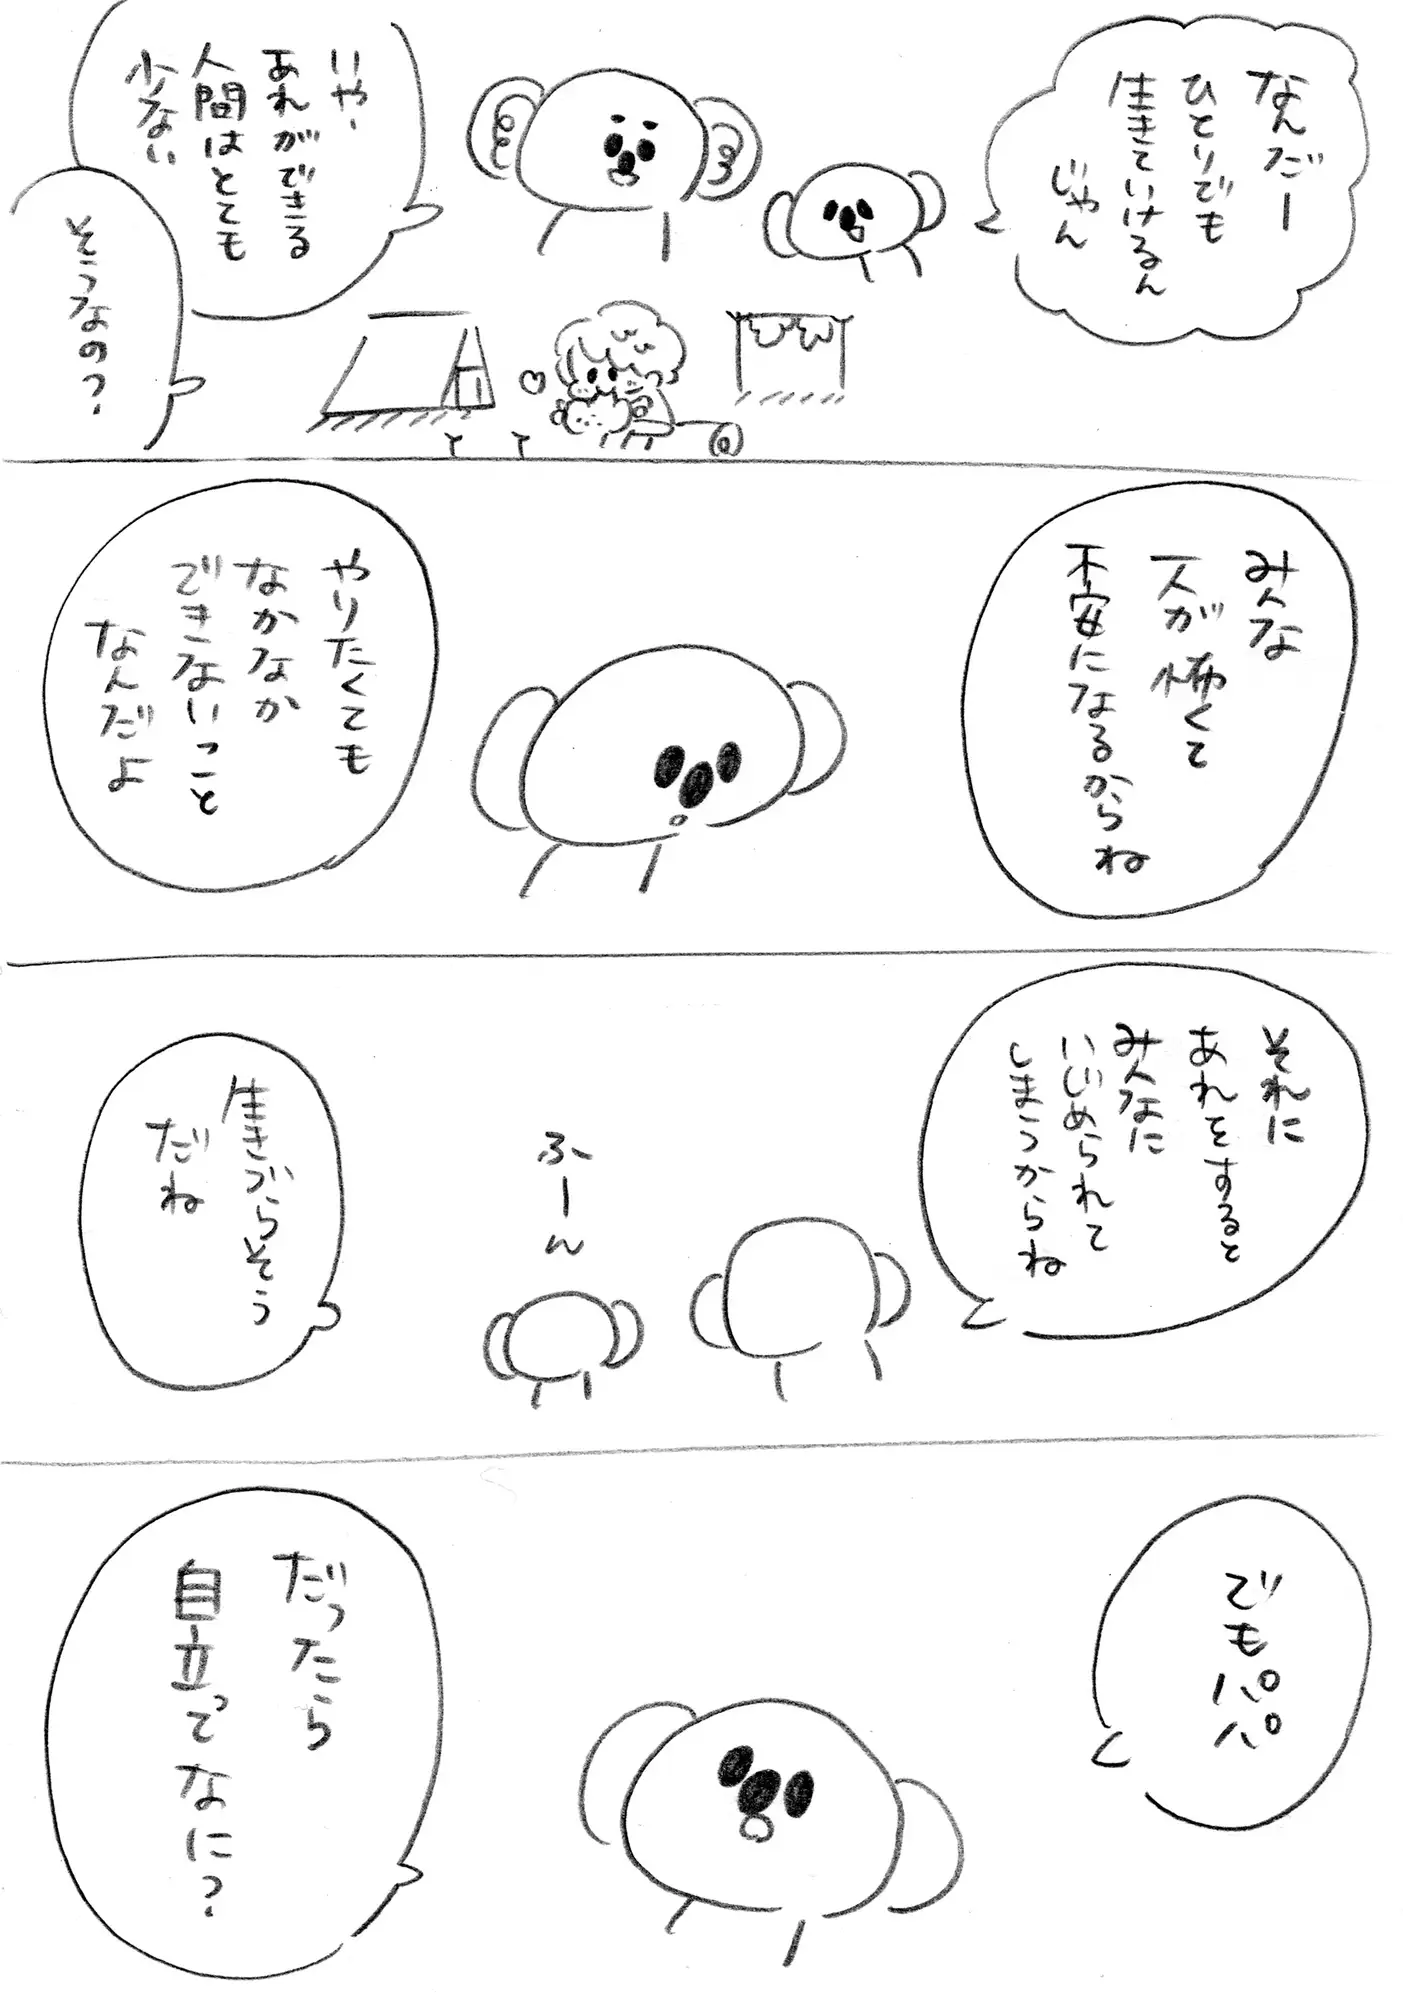 なんだー
ひとりでも
生きていけるん
じゃん
いやー
あれができる
人間はとても
少ない
そうなの?
みんな
一人が怖くて
不安になるからね
やりたくても
なかなか
できないこと
なんだよ
それに
あれをすると
みんなに
いじめられて
しまうからね
ふーん
生きづらそう
だね
でもパパ
だったら
自立ってなに?